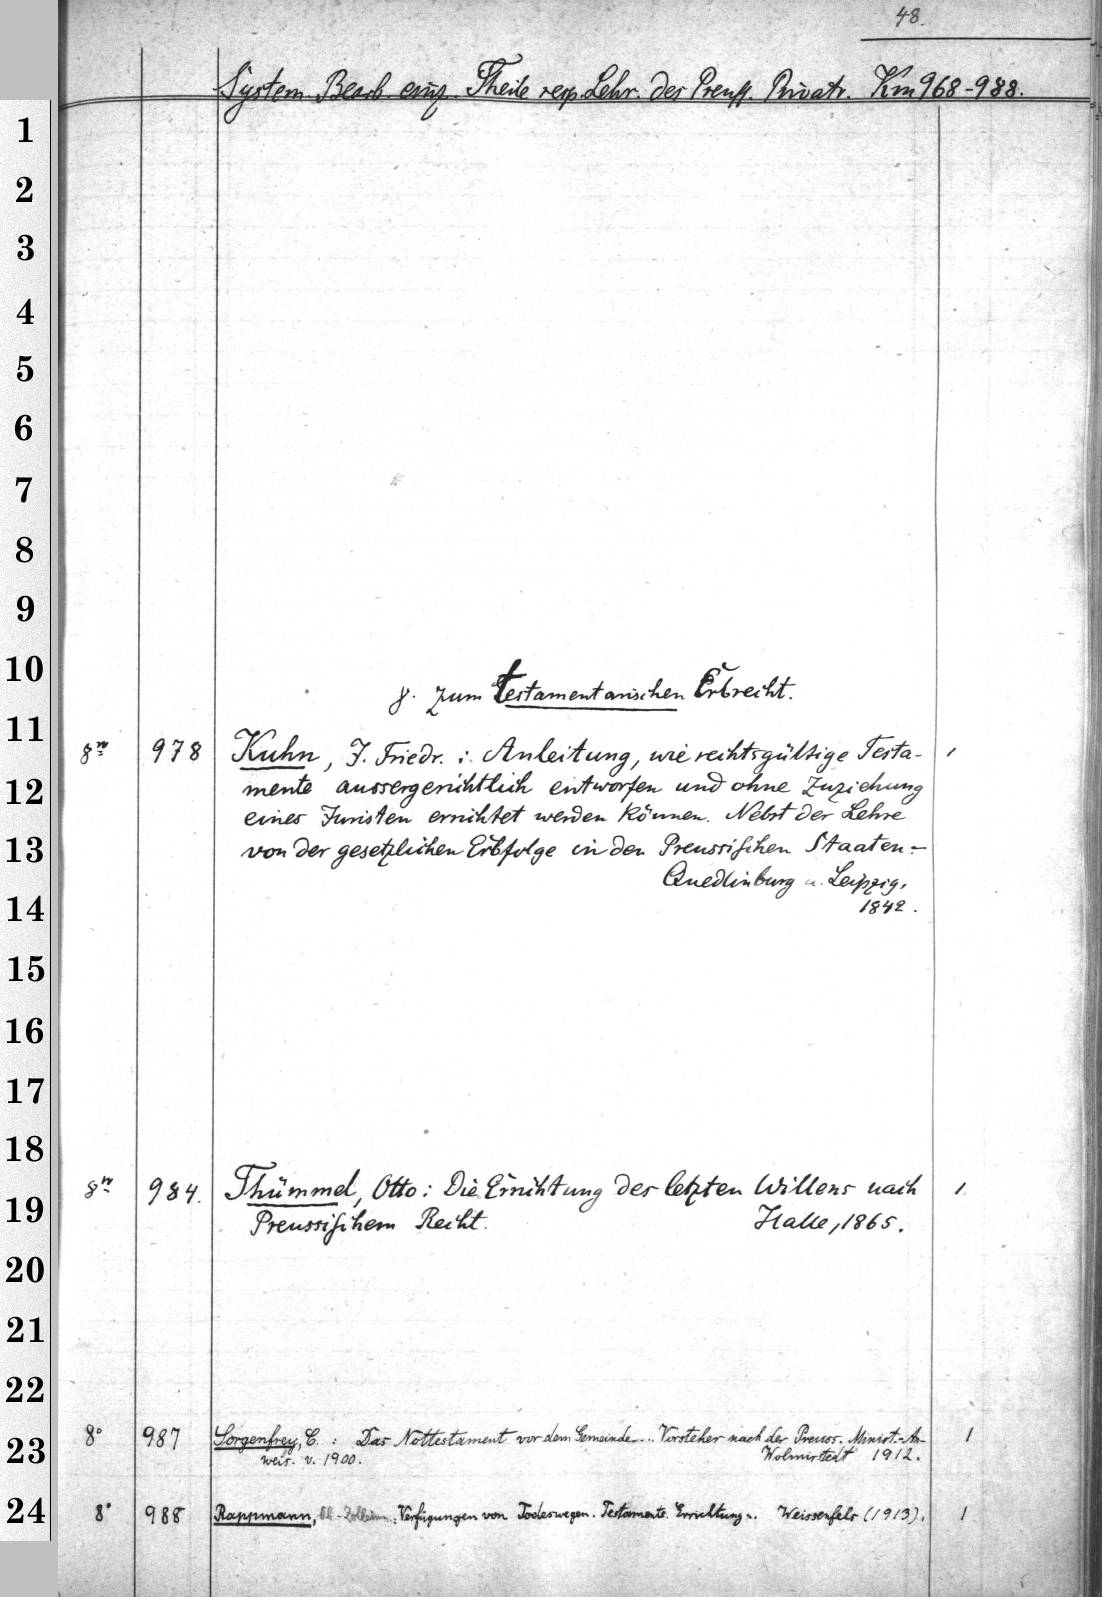 48.
System. Bearb. einz. Theile resp. Lehr. des Preuss. Privatr. Km 968-988.
1
2
3
4
5
6
7
8
9
10
γ. zum testamentarischen Erbrecht.
11
8º 978 Kuhn, J. Friedr.: Anleitung, wie rechtsgültige Testa- 1
12
mente aussergerichtlich entworfen und ohne Zuziehung
eines Juristen errichtet werden können. Nebst der Lehre
13
von der gesetzlichen Erbfolge in den Preussischen Staaten.-
Quedlinburg u. Leipzig,
14
1842.
15
16
17
18
8º 984. Thümmel, Otto: Die Errichtung des letzten Willens nach 1
19
Preussischem Recht. Halle, 1865.
20
21
22
8° 987 Sorgenfrey, C.: Das Nottestament vor dem Gemeinde... Vorsteher nach der Preuss. Minist.-An- 1
23
weis. v. 1900. Wolmirstedt 1912.
24
8° 988 Rappmann, : Verfügungen von Todeswegen. Testaments. Errichtung.. Weissenfels (1913). 1